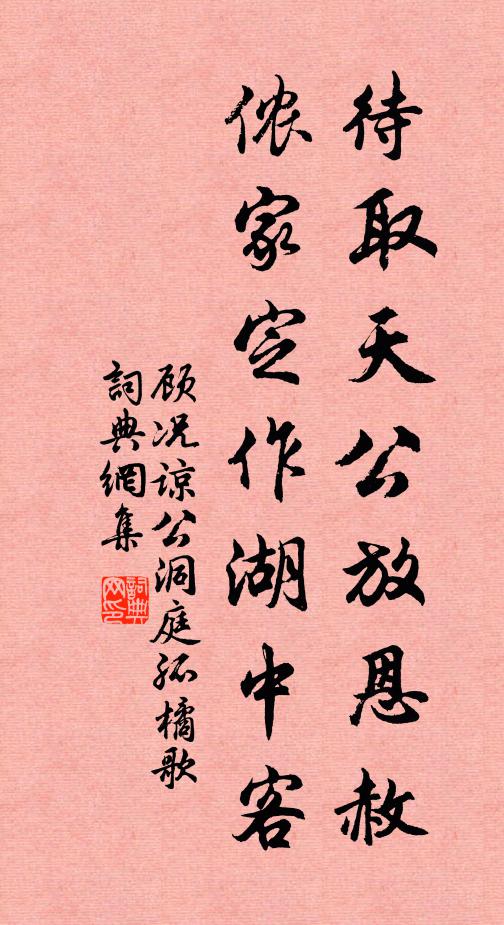 待取天公放恩赦
侬家定作湖中客
顾况谅公洞庭孤橘歌
詞典網集
詞典
网印